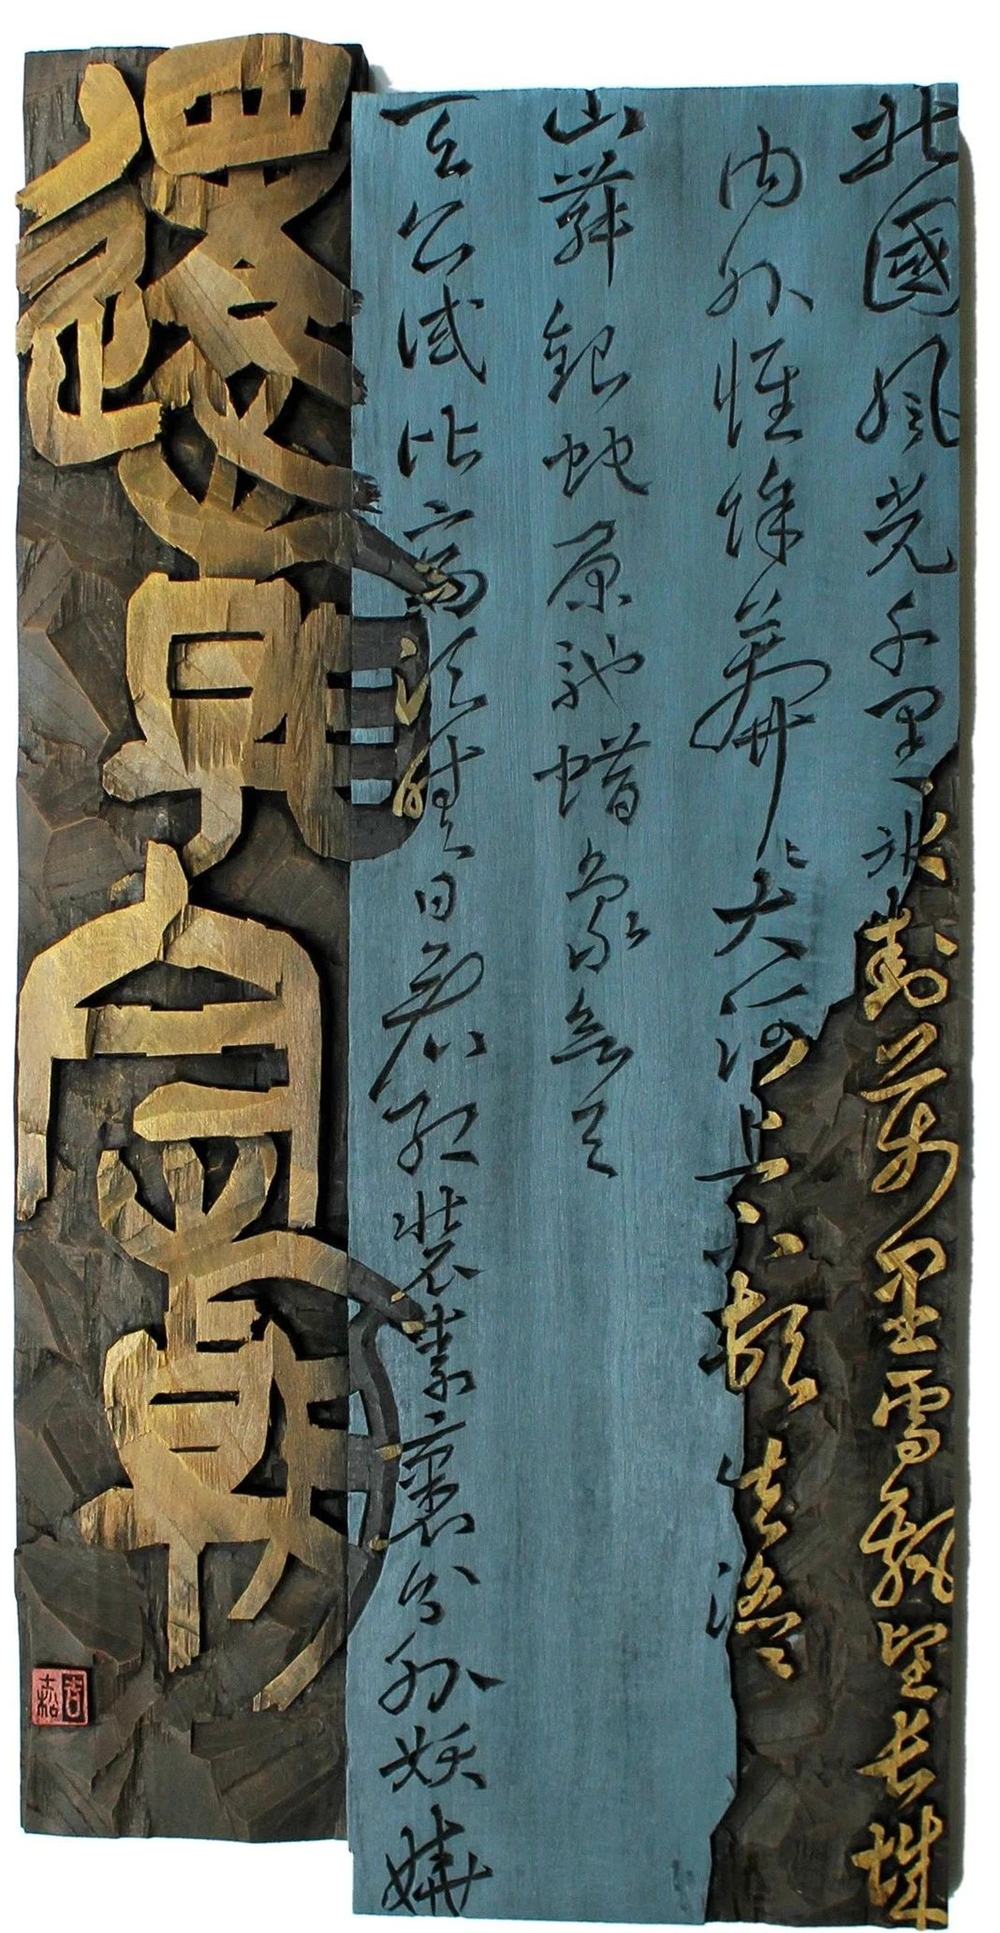 北國風光千里冰封萬里雪飄望長城
内外惟馀莽々大河上下頓失滔々
山舞銀蛇原馳蜡象欲与
天公試比高須晴日看紅裝素裹分外妖嬈